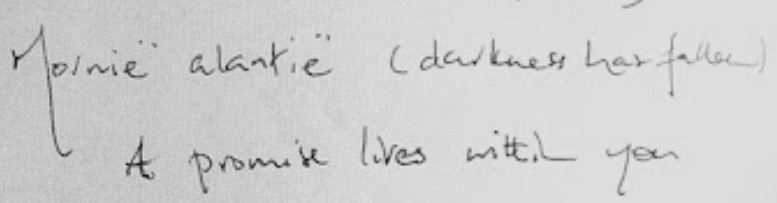 Mornië alantië (darkness has fallen)
A promise lives within you